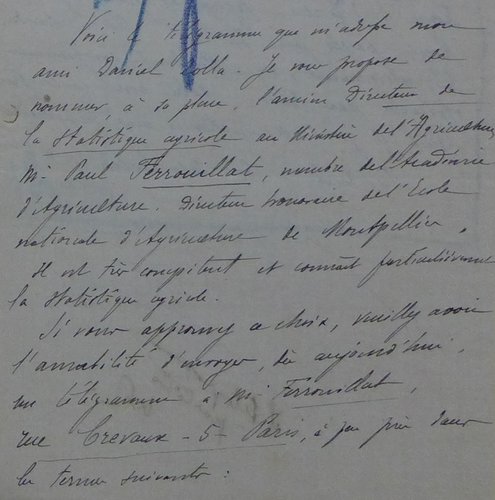 Voici le télégramme que m'adresse mon
ami Daniel Zolla. Je vous propose de
nommer, à sa place, l'ancien Directeur de
la statistique agricole au Ministère de l'Agriculture
Mr Paul Ferrouillat, membre de l'Académie
d'Agriculture. Directeur honoraire de l'Ecole
nationale d'Agriculture de Montpellier,
Il est très compétent et connaît particulièrement
la statistique agricole.
Si vous approuvez ce choix, veuillez avoir
l'amabilité d'envoyer, dès aujourd'hui,
un télégramme à Mr Ferrouillat,
rue Crevaux - 5 - Paris, à peu près dans
les termes suivants :